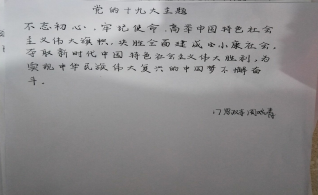 党的十九大主题
不忘初心,牢记使命,高举中国特色社会
主义伟大旗帜,决胜全面建成小康社会,
夺取新时代中国特色社会主义伟大胜利,为
实现中华民族伟大复兴的中国梦不懈奋
斗。